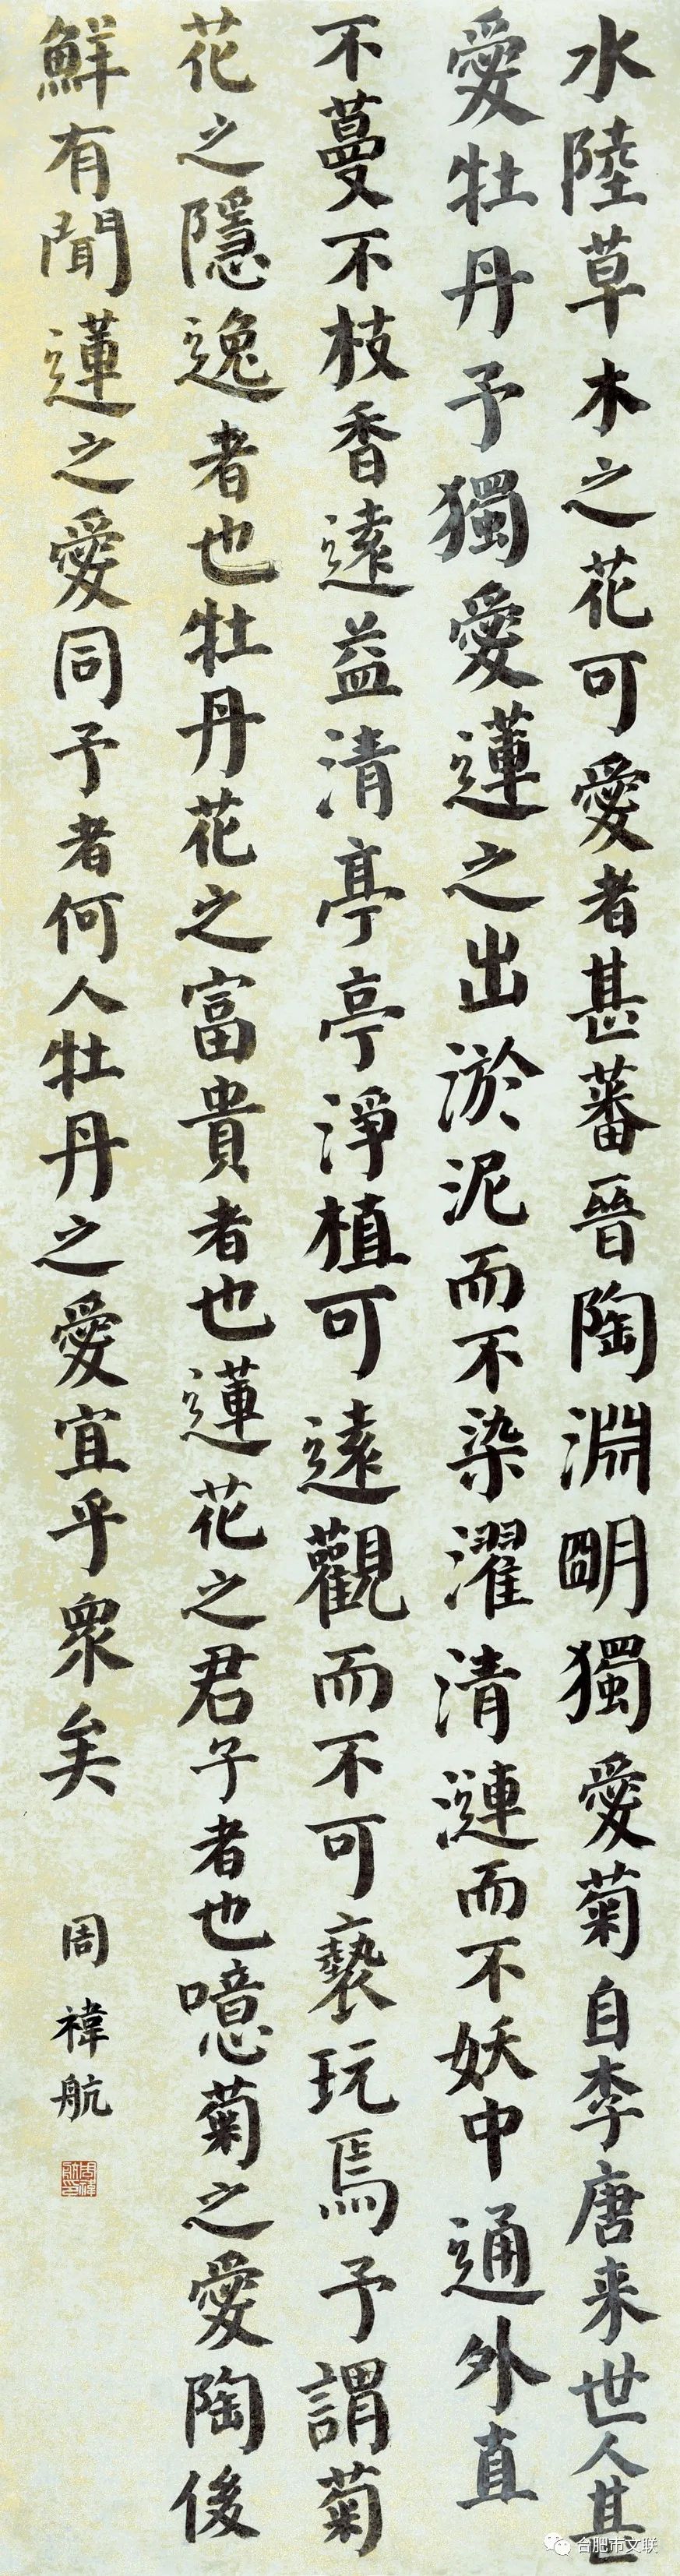 水陸草木之花可愛者甚蕃晉陶淵明獨愛菊自李唐来世人甚
愛牡丹予獨愛蓮之出淤泥而不染濯清漣而不妖中通外直
不蔓不枝香遠益清亭亭淨植可遠觀而不可褻玩焉予謂菊
花之隱逸者也牡丹花之富貴者也蓮花之君子者也噫菊之愛陶後
鮮有聞蓮之愛同予者何人牡丹之愛宜乎衆矣
周禕航
合肥市文联